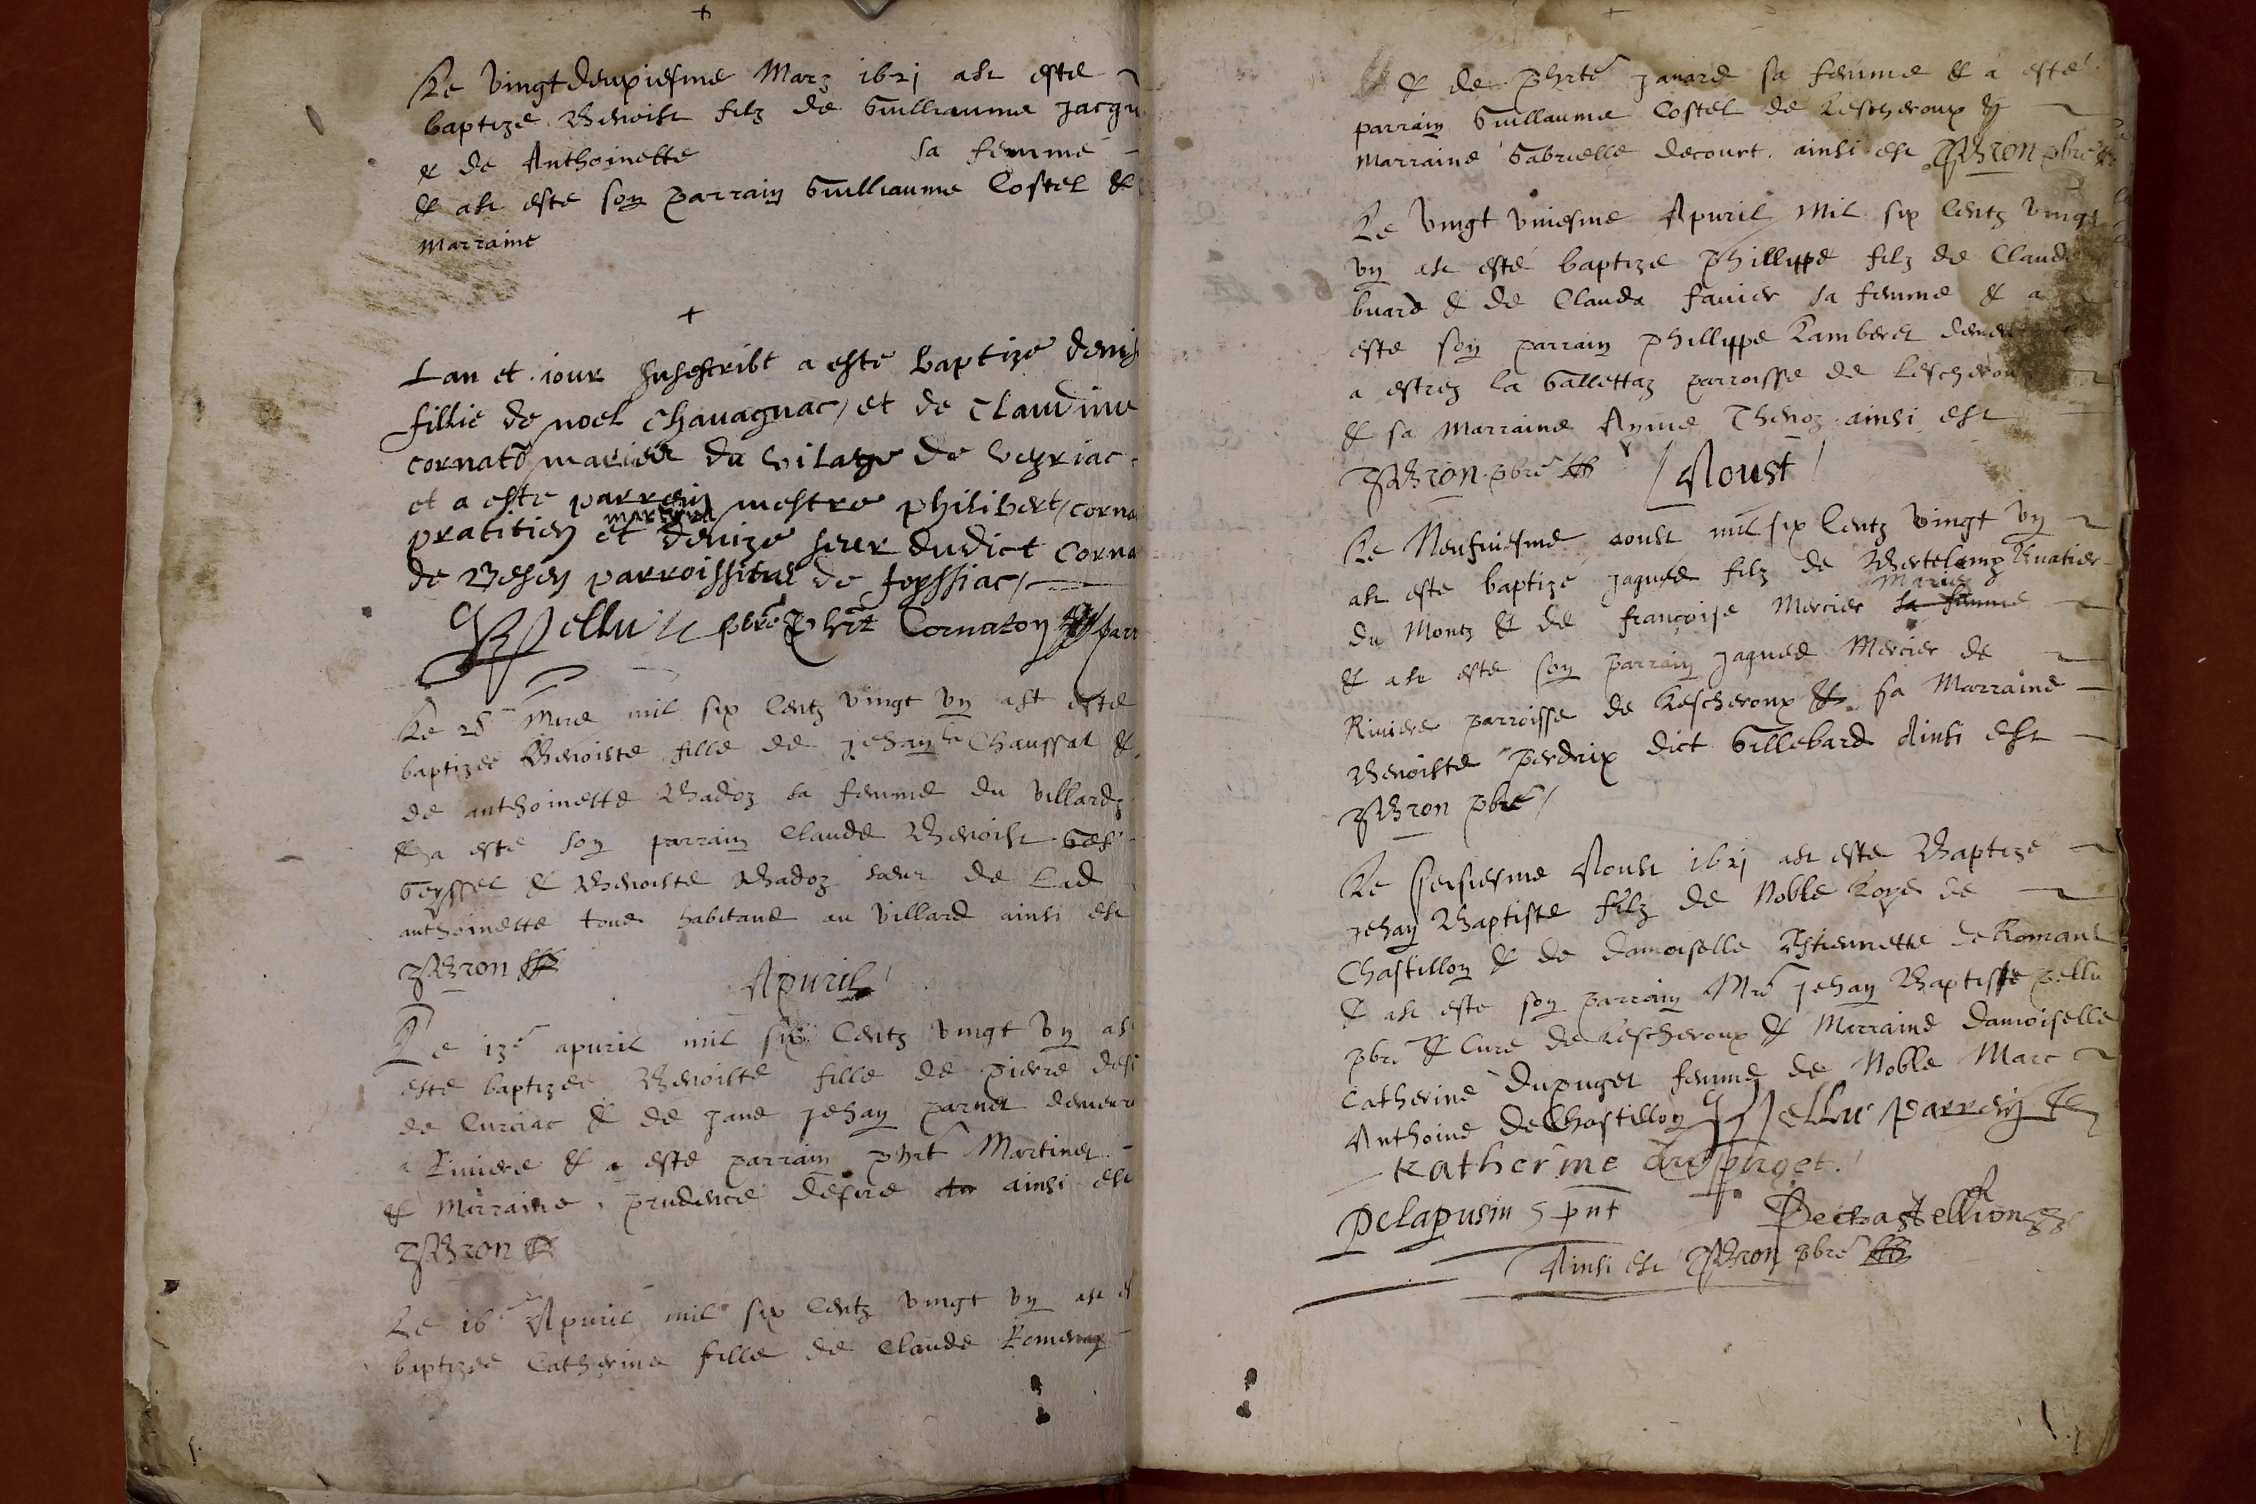 Le vingtdeuxiesme Marz 1621 ast esté
baptize Benoist filz de Guilliaume Jacqu
& de Anthoinette sa femme
& ast este son parrain Guilliaume Costel &
marraine
Lan et iour susescribt a este baptize denis
fillie de noel chauagnac et de claudine
cornatō mariés du vilage de veyriac
et a este parrein mestre philibert corna
praticien et marreine denize seur dudict corna
de Besen parroissiens de Joyssiac
Pellu pbre Phrt Cornaton parr
Le 28e Mars mil six Centz vingt vn ast este
baptizee Benoiste fille de Jehan Chaussat &
de anthoinette Badoz sa femme du villardz
& a este son parrain Claude Benoist
Geyssel & Benoiste Badoz saeur de Lad
anthoinette tous habitans au villard ainsi est
JBron
Apuril
Le 13e apuril mil six Centz vingt vn ast
este baptizee Benoiste fille de pierre
de Curciac & de Jane Jehan parnet demeur
a Riuiere & a este parrain phrt Martinet
& Marraine prudence desire ainsi est
JBron
Le 16e Apuril mil six Centz vingt vn ast
baptizee Catherine fille de Claude
& de Phrte Janard sa femme & a esté
parrain Guillaume Costel de Lescheroux &
Marraine Gabrielle decourt ainsi est JBron pbre
Le vingt vniesme Apuril Mil six Centz vingt
vn ast esté baptize Phillippe filz de Claude
buard & de Clauda fauier sa femme & a
este son parrain Phillippe Lamberet
a estrez la Gallettaz parroisse de Lescheroux
& sa Marraine Ayme Thenoz ainsi est
JBron pbre
Aoust
Le Neufuiesme aoust mil six Centz vingt vn
ast este baptizé Jaques filz de Bertelemy Buatier
du Montz & de françoise Mercier mariez
& ast este son parrain Jaques Mercier de
Riuiere parroisse de Lescheroux & sa Marraine
Benoiste Perdrix dict Gillebard Ainsi est
JBron pbre
Le seisiesme Aoust 1621 ast este Baptize
Jehan Baptiste filz de Noble Loys de
Chastillon & de damoiselle Estiennette de Romans
& ast este son parrain Mre Jehan Baptiste pellu
pbre & Curé de Lescheroux & Marraine damoiselle
Catherine dupuget femme de Noble Marc
Anthoine de Chastillon Pellu parrein
Katherine du puget
Delapusin pnt Dechastellion
Ainsi est JBron pbre